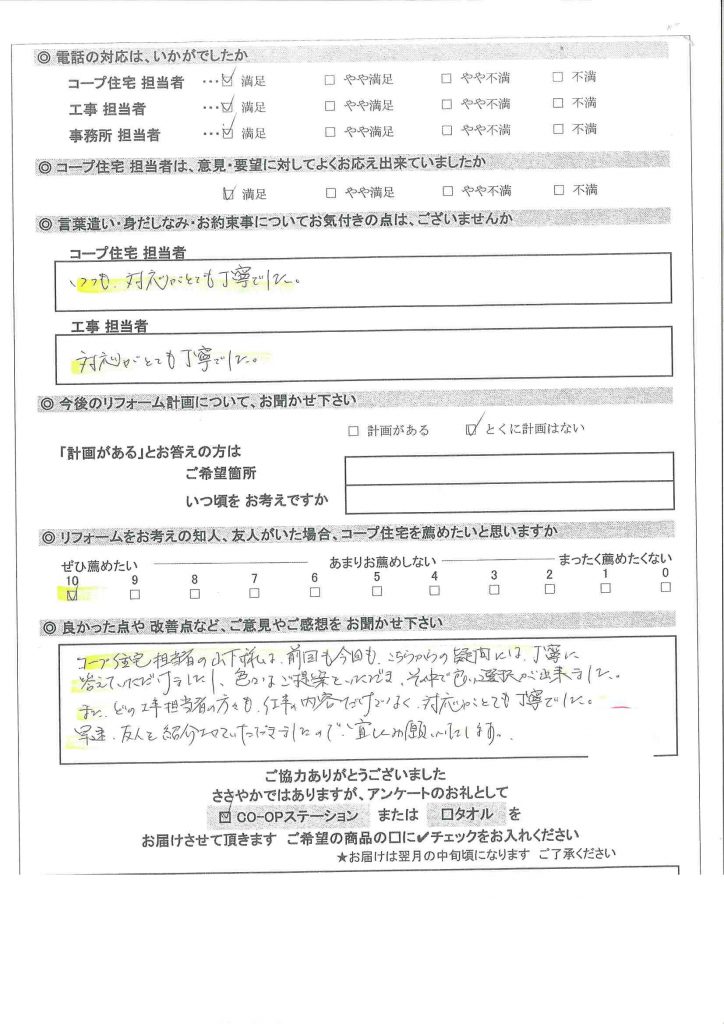 ◎ 電話の対応は、いかがでしたか
コープ住宅 担当者 …☑ 満足 □ やや満足 □ やや不満 □ 不満
工事 担当者 …☑ 満足 □ やや満足 □ やや不満 □ 不満
事務所 担当者 …☑ 満足 □ やや満足 □ やや不満 □ 不満
◎ コープ住宅 担当者は、意見・要望に対してよくお応え出来ていましたか
☑ 満足 □ やや満足 □ やや不満 □ 不満
◎ 言葉遣い・身だしなみ・お約束事についてお気付きの点は、ございませんか
コープ住宅 担当者
いつも、対応がとても丁寧でした。
工事 担当者
対応がとても丁寧でした。
◎ 今後のリフォーム計画について、お聞かせ下さい
□ 計画がある ☑ とくに計画はない
「計画がある」とお答えの方は
ご希望箇所
いつ頃を お考えですか
◎ リフォームをお考えの知人、友人がいた場合、コープ住宅を薦めたいと思いますか
ぜひ薦めたい あまりお薦めしない まったく薦めたくない
10 9 8 7 6 5 4 3 2 1 0
☑ □ □ □ □ □ □ □ □ □ □
◎ 良かった点や 改善点など、ご意見やご感想を お聞かせ下さい
コープ住宅担当者の山下様は、前回も今回も、こちらからの疑問には、丁寧に
答えていただけましたし、色々なご提案をいただき、その中で良い選択が出来ました。
また、どの工事担当者の方々も、仕事の内容だけでなく、対応がとても丁寧でした。
早速、友人を紹介させていただきましたので、宜しくお願いいたします。
ご協力ありがとうございました
ささやかではありますが、アンケートのお礼として
☑ CO-OPステーション または □タオル を
お届けさせて頂きます ご希望の商品の□に✔チェックをお入れください
★お届けは翌月の中旬頃になります ご了承ください